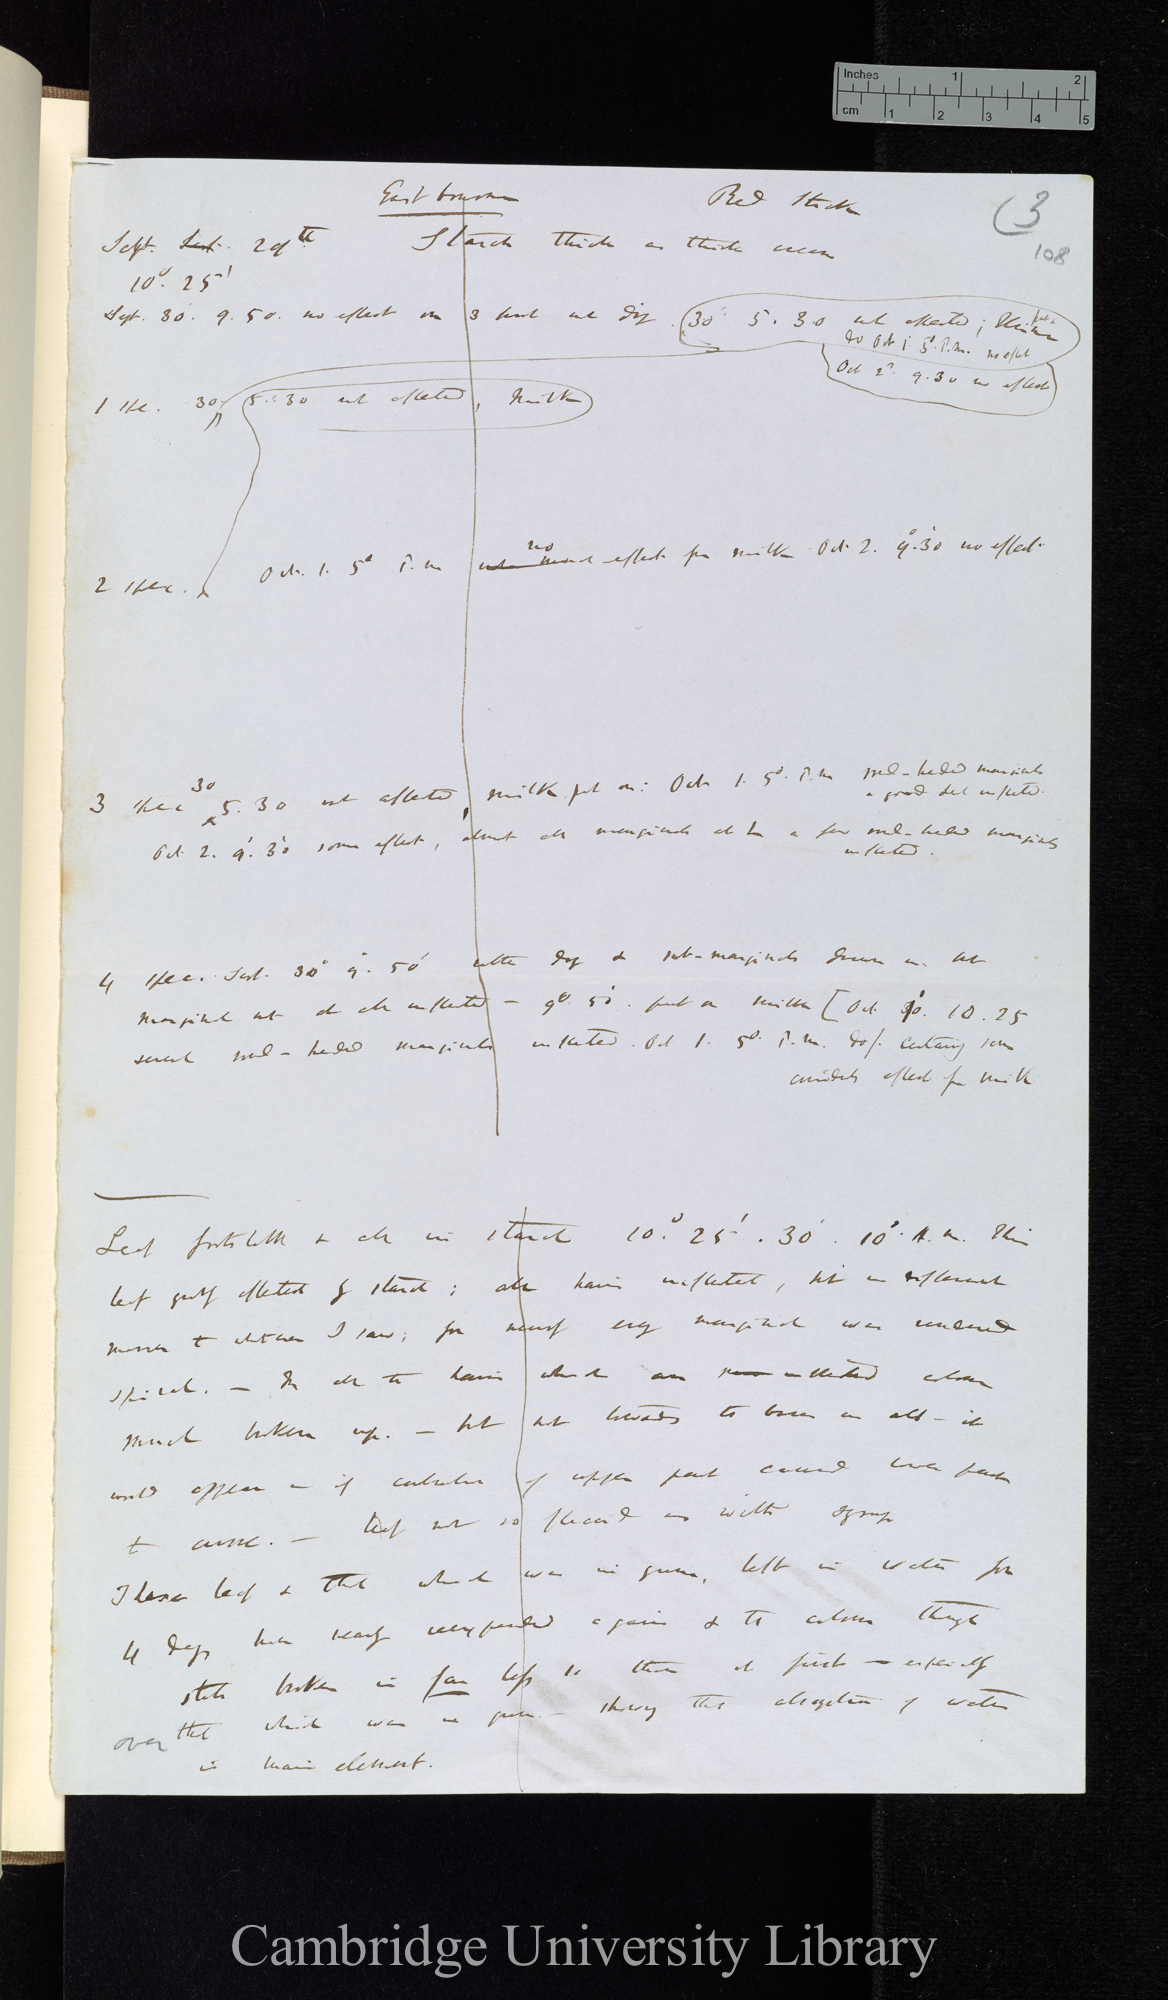 Inches 1 2
cm 1 2 3 4 5
Eastbourne Red Stick
(3
108
Sept. Sept. 29th Starch thick as thick cream
10°. 25'
Sept. 30. 9. 50. no effect on 3 but not dry. 30 5. 30 not affected;
do Oct 1. 5°. P.m. no effect
Oct 2°. 9.30 no effect
1 spec. 30 5.30 not affected, milk
2 spec. Oct. 1. 5° P.m no effect from milk Oct 2. 9°.30 no effect
3 spec 30 5. 30 not affected, milk put on: Oct 1. 5°. P.m red-headed marginals
a good deal inflected.
Oct 2. 9°. 30' some effect, almost all marginals a few red-headed marginals
inflected.
4 spec. Sept. 30° 9°. 50' rather dry & sub-marginals drawn in but
marginal not at all inflected — 9°. 50'. put on milk [Oct 10. 25
several red-headed marginals inflected. Oct 1. 5°. P.m. do/. certainly some
considerable effect from milk
Leaf footstalk & all in starch 10.° 25'. 30'. 10° A.m. This
leaf greatly affected by starch; all hairs inflected, but in different
manner to what ever I saw; for nearly every marginal was rendered
spiral. — In all the hairs which are inflected colour
much broken up. — but not towards the base in all — it
would appear as if contraction of upper part caused lower part
to curve. — Leaf not so flaccid as with syrup
These leaf & that which was in gum, left in water for
4 days have nearly reexpanded again & the colour though
still broken is far less so than at first — especially
that which was in gum. — showing that absorption of water
over
is main element.
Cambridge University Library